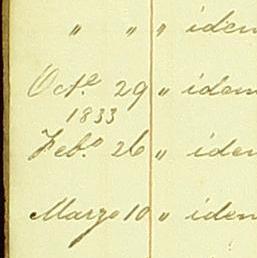 " " " idem
Oct.e 29 " idem
1833
Feb.o 26 " idem
Marzo 10 " idem